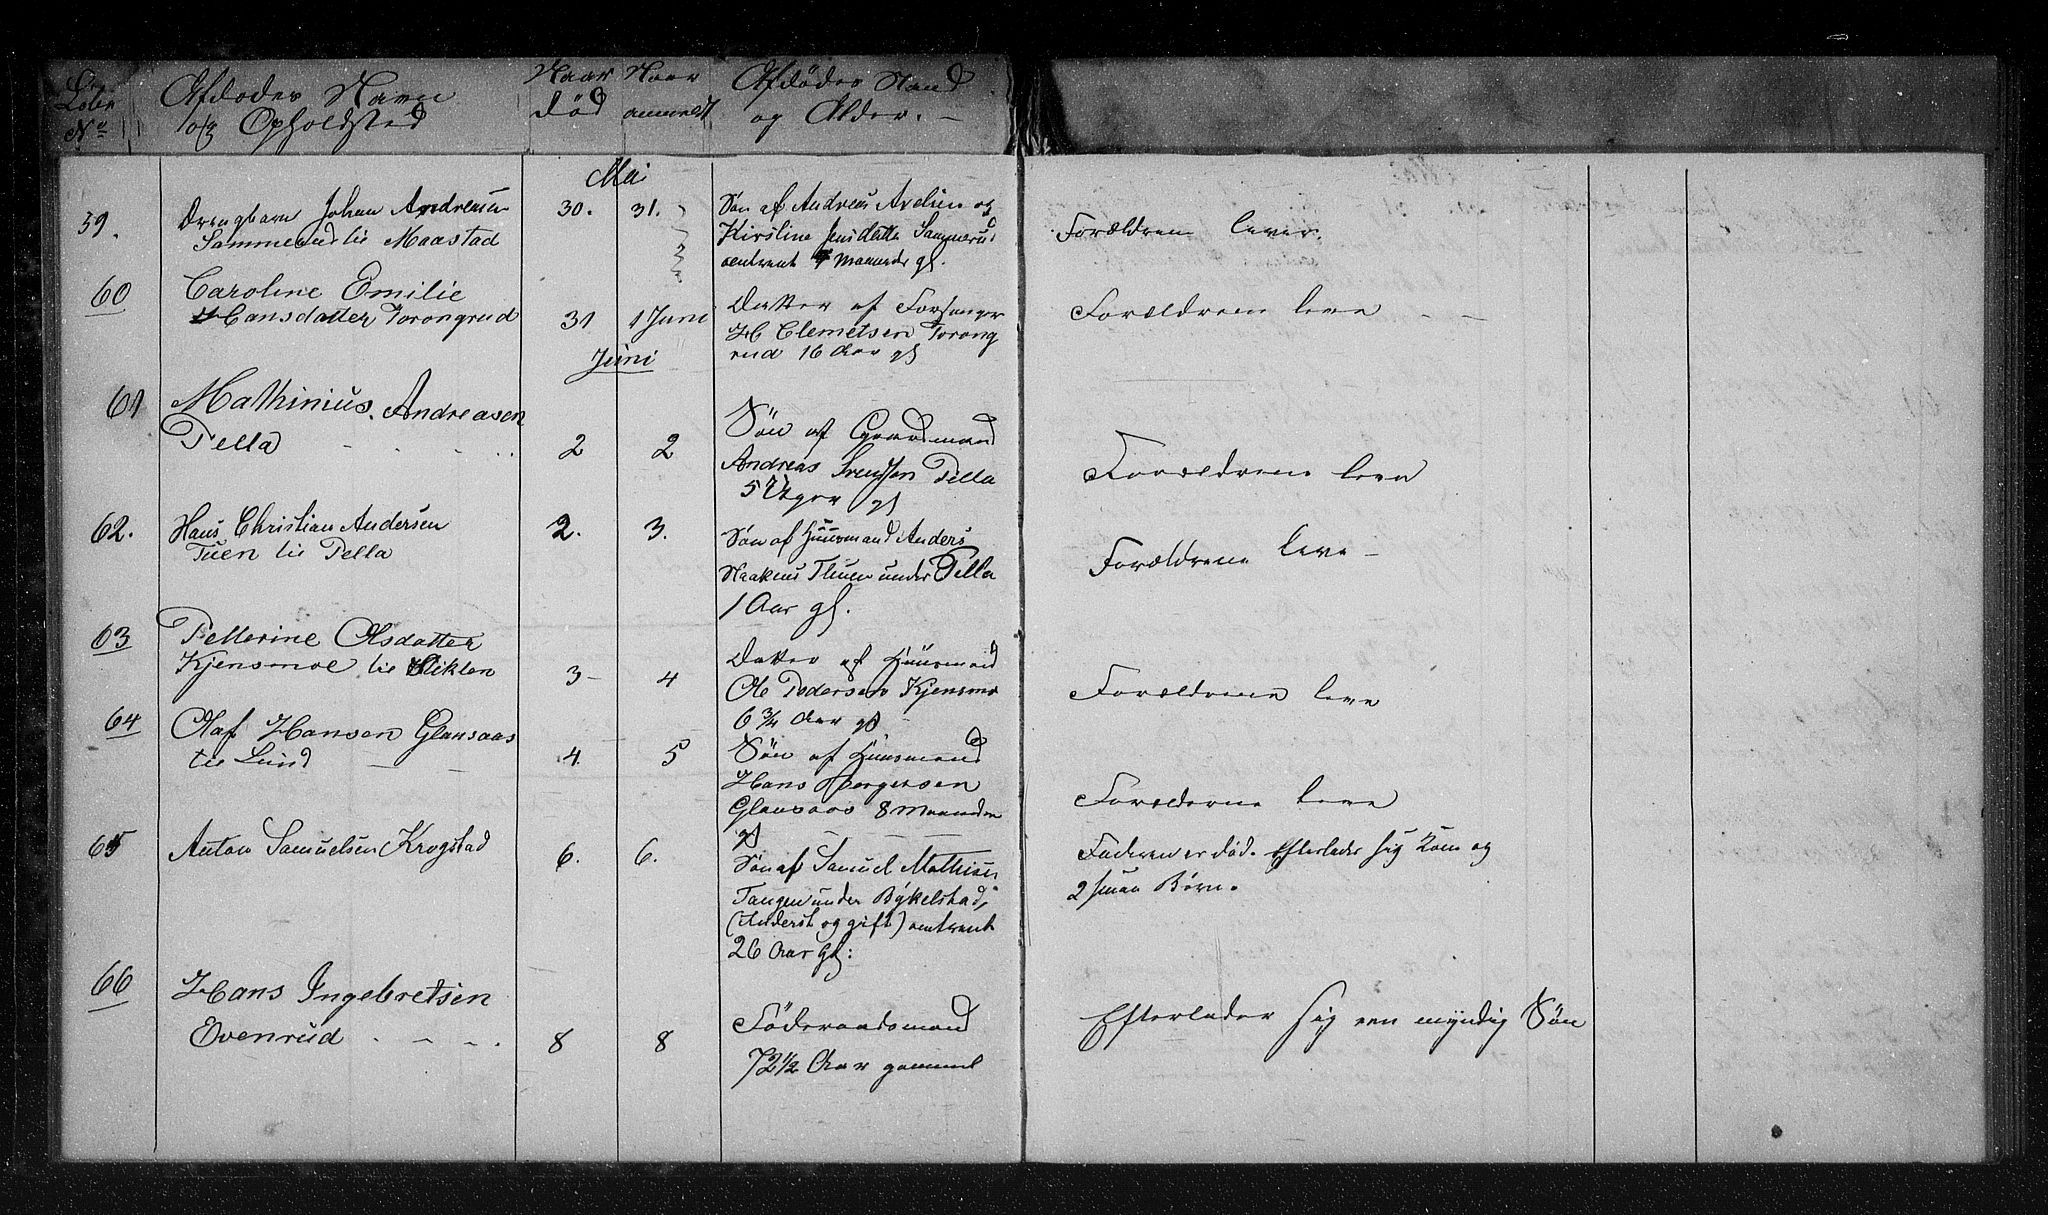 Løbe
No
Afdødes Navn
og Opholdsted
Naar
død
Naar
anmeldt
Afdødes Stand
og Alder. –
Mai
59.
Drengbarn Johan Andreasen
til Maastad
30. 31.
Søn af Andreas Axelsen og
Kirstine Jensdatter
omtrent Maaneder gl.
Forældrene lever.
60
Caroline Emilie
Hansdatter Torongrud
31 1 Juni
Datter af Forsanger
H Clemetsen Torong
rud 16 Aar gl
Forældrene leve – –
Juni
61
Mathinius Andreasen
Tella
2 2
Søn af Gaardmand
Andreas Svendsen Tella
5 Uger gl
Forældrene leve
62.
Hans Christian Andersen
Tuen til Tella
2. 3.
Søn af Huusmand Anders
Haakens Thuen under Tella
1 Aar gl.
Forældrene leve –
63
Petterine Olsdatter
Kjensmoe til
3 – 4
Datter af Huusmand
Ole Pedersen Kjensmo
6 3/4 Aar gl
Forældrene leve
64
Olaf Hansen Glansaas
til Lund
4 5
Søn af Huusmand
Hans
Glansaas 8 Maaneder
gl
Forælderne leve
65
Anton Samuelsen Krogstad
6. 6.
Søn af Samuel Mathisen
Tangen under Bykelstad,
og gift) omtrent
26 Aar Gl:
Faderen er død. Efterlader sig Kone og
2 smaa Børn.
66
Hans Ingebretsen
Evenrud
8 8
Føderaadsmand
72 1/2 Aar gammel
Efterlader sig een myndig Søn